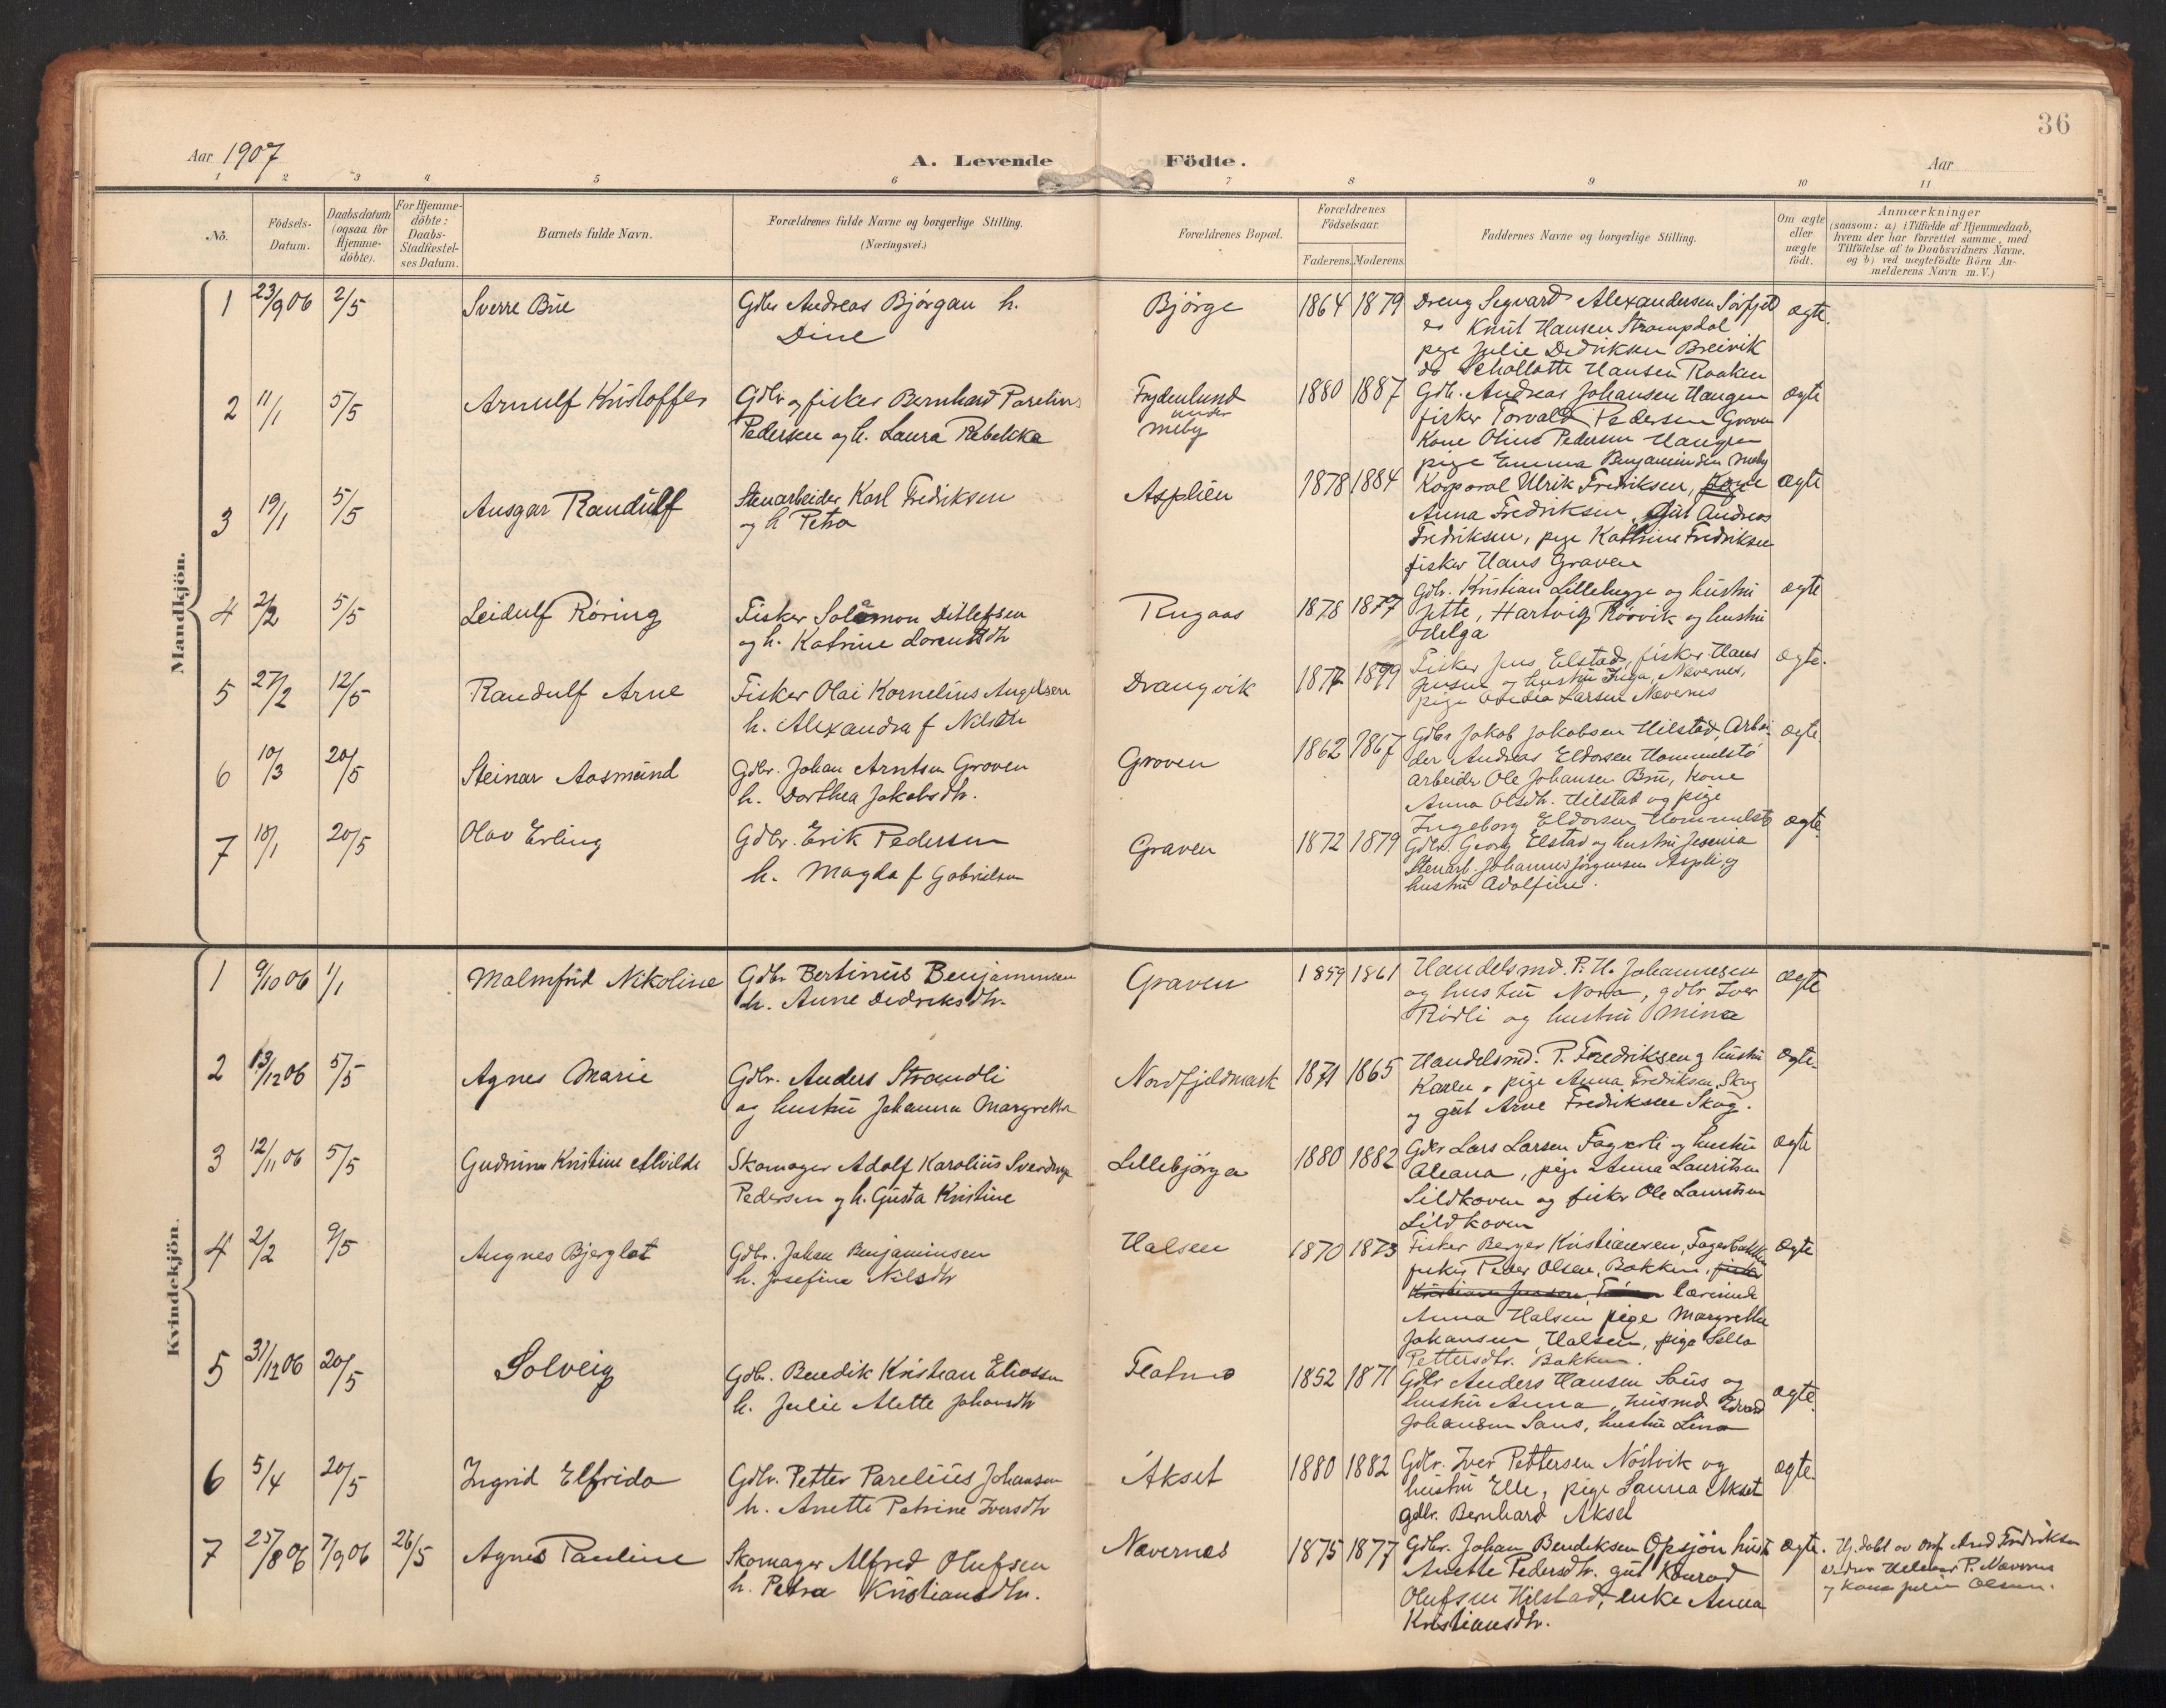 36
Aar 1907
A. Levende Födte.
Aar
1 2 3 4 5 6 7 8 9 10 11
No.
Födsels-
Datum.
Daabsdatum
(ogsaa for
Hjemme-
döbte).
For Hjemme-
döbte:
Daabs-
Stadfæstel-
ses Datum.
Barnets fulde Navn.
Forældrenes fulde Navne og borgerlige Stilling.
(Næringsvei.)
Forældrenes Bopæl.
Forældrenes
Födselsaar.
Faderens. Moderens.
Faddernes Navne og borgerlige Stilling.
Om ægte
eller
uægte
födt.
Anmærkninger
(saasom: a) i Tilfælde af Hjemmedaab,
hvem der har forrettet samme, med
Tilföielse af to Daabsvidners Navne.
og b) ved uægtefödte Börn An-
melderens Navn m. V.)
Mandkjön.
1 23/9 06 2/5 Sverre Bue Gdbr Andreas Bjørgan h.
Dine
Bjørge 1864 1879 Dreng Segvard Alexandersen Sørfjeld
Knut Hansen Strompdal
pige Julie Dedriksen Breivik
do Schallotte Hansen Raaken
ægte.
2 11/1 5/5 Arnulf Kristoffer Gdbr og fisker Bernhard Parelius
Pedersen og h. Laura Rebekka
Frydenlund
under
Meby
1880 1887 Gdb. Andreas Johansen Haugen
fisker Torvald Pedersen Graven
Kone Oline Pedersen Haugen
pige Emma Benjaminsen Meby
ægte
3 19/1 5/5 Ansgar Randulf Stenarbeider Karl Fredriksen
og h Petra
Asplien 1878 1884 Korporal Ulrik Fredriksen,
Anna Fredriksen, Gut Andreas
Fredriksen, pige Kathrine Fredriksen
fisker Hans Graven
ægte
4 2/2 5/5 Leidulf Røring Fisker Salomon Ditlefsen
og h. Katrine Lorentsdtr
Rugaas 1878 1877 Gdb. Kristian Lillebygge og hustru
Jette, Hartvig Rørvik og hustru
Helga
ægte
5 27/2 12/5 Randulf Arne Fisker Olai Kornelius Angelsen
h. Alexandra f Nilsdtr
Drangvik 1877 1899 Fisker Jens Elstad, fisker Hans
Jensen og hustru Inga, Nævernes,
pige Ovedia Larsen Nævernes
ægte.
6 10/3 20/5 Steinar Aasmund Gdbr. Johan Arntsen Graven
h. Dorthea Jakobsdtr.
Graven 1862 1867 Gdbr Jakob Jakobsen Hilstad, Arbei-
der Andreas Eldorsen Hommelstø
arbeider Ole Johansen Bru, Kone
Anna Olsdtr. Hilstad og pige
Ingeborg Eldorsen Hommelstø
ægte
7 18/1 20/5 Olav Erling Gdbr. Erik Pedersen
h. Magda f Gabrielsen
Graven 1872 1879 Gdbr. Georg Elstad og hustru Jesenia
Stenarb. Johannes Jørgensen Aspli og
hustru Adolfine.
ægte
Kvindekjön.
1 9/10 06 1/1 Malmfrid Nikoline Gdbr Bertinus Benjaminsen
h. Anne Dedreksdtr.
Graven 1859 1861 Handelsmd. P. H. Johannesen
og hustru Nora, gdbr Iver
Rødli og hustru Mina
ægte
2 13/12 06 5/5 Agnes Marie Gdbr. Anders Strandli
og hustru Johanna Margrethe
Nordfjeldmark 1871 1865 Handelsmd. P. Fredriksen og hustru
Karen, pige Anna Fredriksen, Skog
og gut Arne Fredriksen Skog.
ægte
3 12/11 06 5/5 Gudrunn Kristine Alvilde Skomager Adolf Karolius Sverdrup
Pedersen og h. Gusta Kristine
Lillebjørga 1880 1882 Gdbr Lars Larsen Fagerli og hustru
Aleana, pige Anna Lauritsen
Sildhoven og fisker Ole Lauritsen
Sildhoven
ægte
4 2/2 9/5 Augnes Bjerglot Gdbr. Johan Benjaminsen
h. Josefine Nilsdtr
Halsen 1870 1873 Fisker Berger Kristiansen, Fagerbakken
fisker Peder Olsen, Bakken, fisker
Kristian Jensen, lærerinde
Anna Halsen pige Margrethe
Johansen, Halsen, pige Sella
Pettersdtr. Bakken.
ægte
5 31/12 06 20/5 Solveig Gdbr. Benedik Kristian Eliassen
h. Julie Alette Johansdtr
1852 1871 Gdbr Anders Hansen Saus og
hustru Anna, husmd Edvard
Johansen Saus, hustru Lina
ægte.
6 5/4 20/5 Ingrid Elfrida Gdbr. Petter Parelius Johansen
h. Anette Petrine Iversdtr
Akset 1880 1882 Gdbr. Iver Pettersen Nøstvik og
hustru Elle, pige Sanna Akset
gdbr. Bernhard Akset
ægte.
7 25/8 06 7/9 06 26/5 Agnes Pauline Skomager Alfred Olufsen
h. Petra Kristiansdtr.
Nævernes 1875 1877 Gdbr. Johan Bendiksen Opsjøn hust.
Anette Pedersdtr. gut Konrad
Olufsen Hilstad, enke Anna
Kristiansdtr.
ægte. Hj. døbt av And Fredriksen
P. Nævernes
og Kone Julie Olsen.